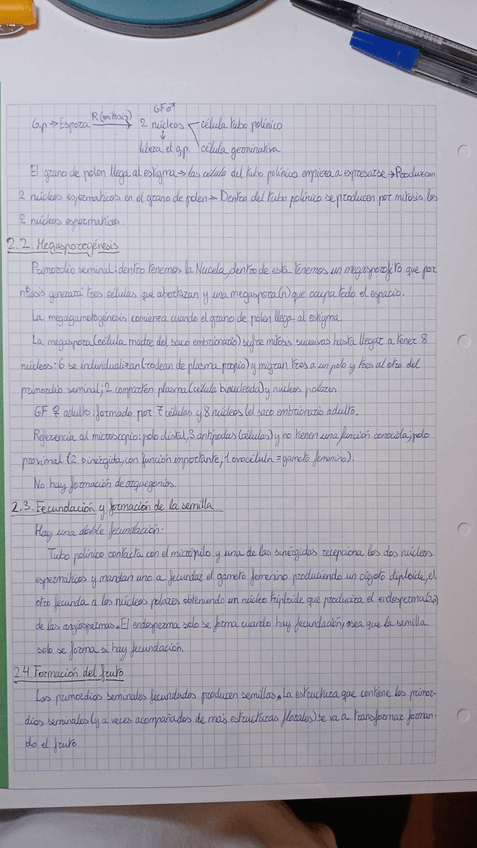 GF♂
Gp → Espora R(mitosis) 2 núcleos célula tubo polínico
libera el g.p. célula germinativa
El grano de polen llega al estigma → las células del tubo polínico empieza a expresarse → Produzcan
2 núcleos espermáticos en el grano de polen → Dentro del tubo polínico se producen por mitosis los
2 núcleos espermáticos.
2.2. Megasporogénesis
Primordio seminal: dentro tenemos la Nucela, dentro de esta tenemos un megasporofito que por
meiosis generará tres células que abortaran y una megaspora (n) que ocupa todo el espacio.
La megagametogénesis comienza cuando el grano de polen llega al estigma.
La megaspora (célula madre del saco embrionario) sufre mitosis sucesivas hasta llegar a tener 8
núcleos: 6 se individualizan (rodean de plasma propio) y migran tres a un polo y tres al otro del
primordio seminal; 2 comparten plasma (célula binucleada) y nucleos polares
GF ♀ adulto: formado por 7 células y 8 núcleos (el saco embrionario adulto.
Referencia al microscopio: polo distal, 3 antípodas (células) y no tienen una función conocida; polo
proximal (2 sinérgida, con función importante, 1 ovocélula = gameto femenino).
No hay formación de arquegonios.
2.3. Fecundación y formación de la semilla
Hay una doble fecundación:
Tubo polínico contacta con el micrópilo y una de las sinérgidas recepciona los dos núcleos
espermáticos y mandan uno a fecundar el gameto femenino produciendo un cigoto diploide, el
otro fecunda a los núcleos polares obteniendo un núcleo triploide que producira el endosperma (3n)
de las angiospermas. El endosperma solo se forma cuando hay fecundación, osea que la semilla
solo se forma si hay fecundación.
2.4. Formación del fruto
Los primordios seminales fecundados producen semillas. La estructura que contiene los primor-
dios seminales (y a veces acompañados de más estructuras florales) se va a transformar forman-
do el fruto.